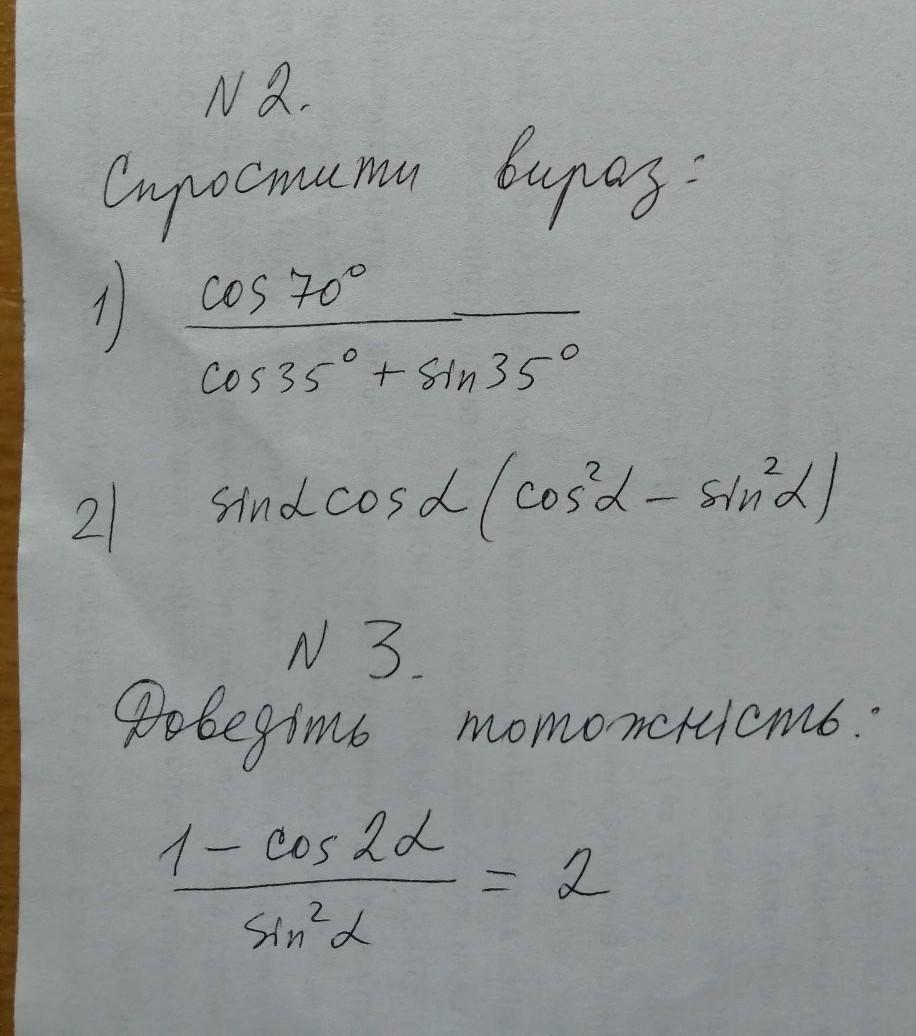 N 2.
Спростити вираз:
1) cos 70°
cos 35° + sin 35°
2) sinα cos α (cos²α - sin²α)
N 3.
Доведіть тотожність:
1 - cos 2α
= 2
sin²α